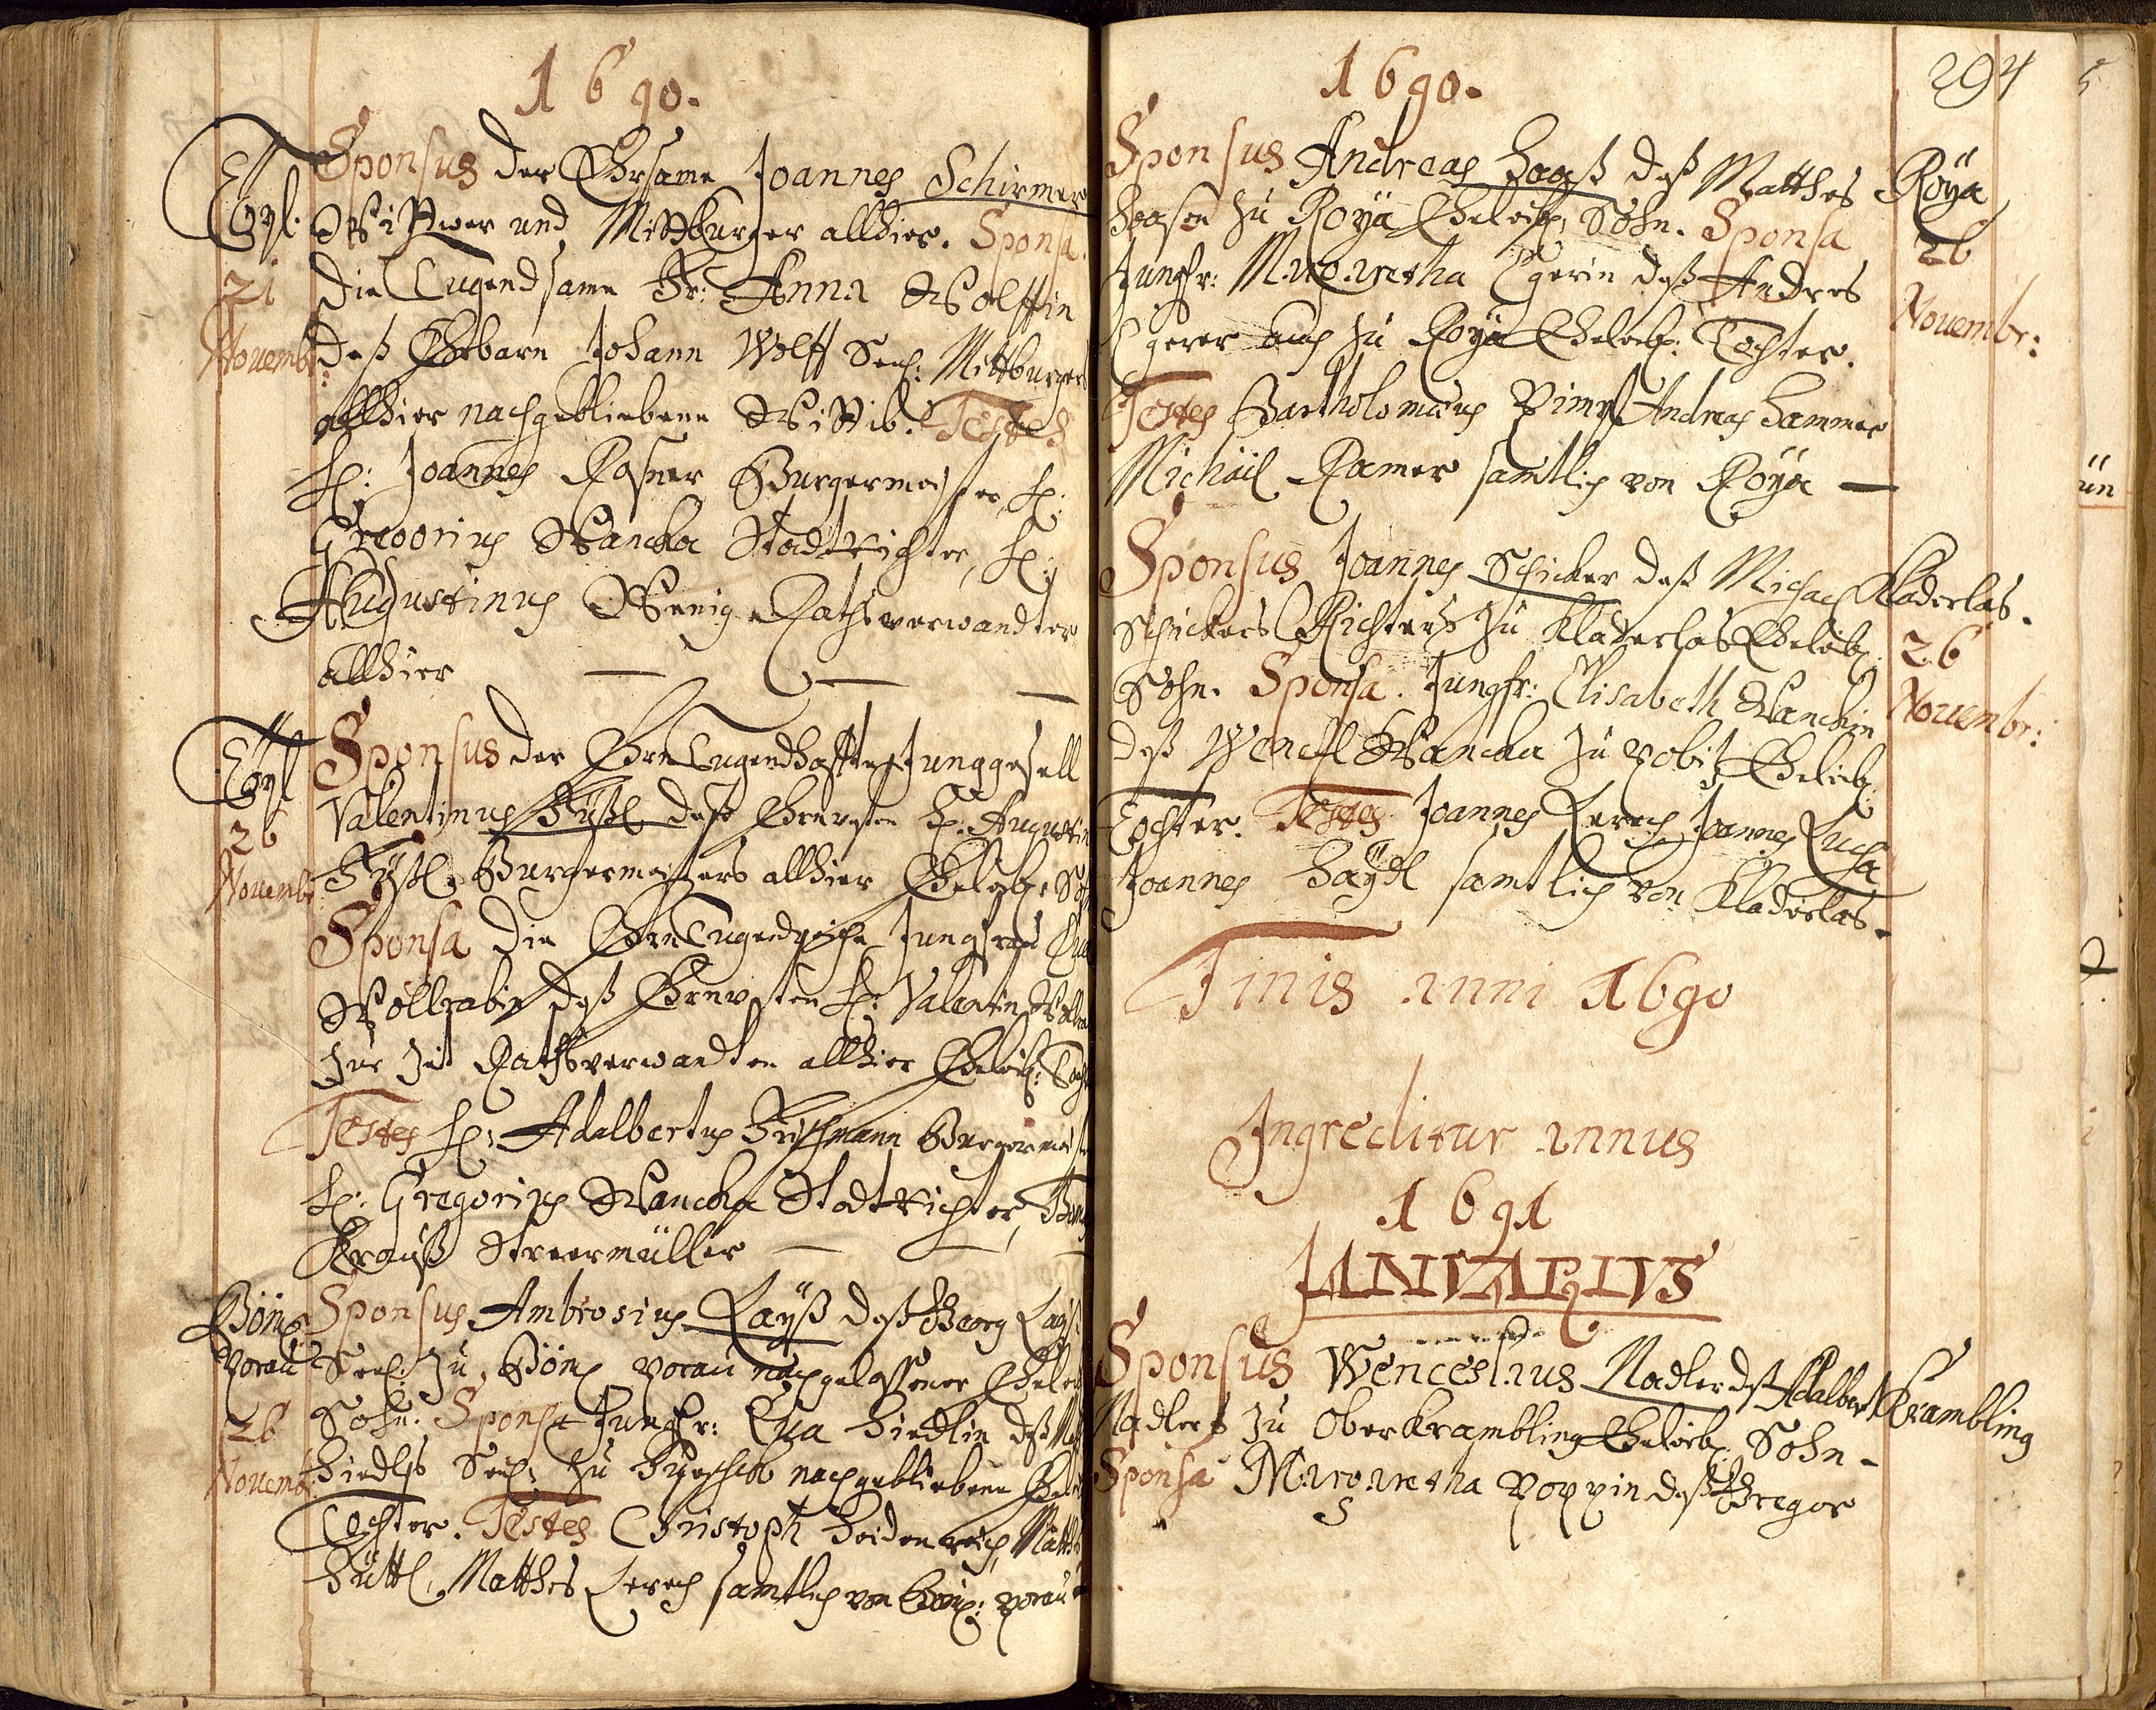 1690.
Teyl.
21
Novembr:
Sponsus der Ehrsame Joannes Schirmer
Wittwer und Mittburger allhier. Sponsa.
die Tugendsame Fr: Anna Wolffin
deß Ehrbarn Johann Wolff Seel: Mittburger
allhier nachgebliebene Wittib. Testes
H: Joannes Rosner Burgermeister, H:
Gregorius Wancka Stadtrichter, H:
Augustinus Wenig Rathsverwandter
allhier
Teyl
26
Novembr:
Sponsus der Ehrn Tugendhaffte Junggesell
Valentinus deß Ehrnvesten H: Augustin
Burgermeisters allhier Eheleibl:
Sponsa die Ehrn Tugendreiche Jungfrau
deß Ehrnvesten H: Valentin
zur Zeit Rathsverwandten allhier Eheleibl:
Testes H: Adalbertus Burgermeister
H: Gregorius Wancka Stadtrichter,
Krauß Streermüller
Böm.
Porau
26
Novembr:
Sponsus Ambrosius Layß deß Georg Layß
Seel: zu Böm. Porau nachgelassener Eheleibl
Sohn. Sponsa Jungfr: Eva Hiedlin deß
Hiedls Seel: zu nachgebliebene
Tochter. Testes Christoph Heidenreich,
Hüttl, Matthes Lerch samtlich von Böm: Porau
1690.
294
Sponsus Andreas Haaß deß Matthes
Haasen zu Roya Eheleibl: Sohn. Sponsa
Jungfr: Margaretha Egerin deß Andres
Egerer auch zu Roya Eheleibl: Tochter.
Testes Bartholomæus Andreas Hammer
Michäel Ramer samtlich von Roya
Röya
26
Novembr:
Sponsus Joannes Schicker deß Michael
Schickers Richters zu Kladerlas Eheleibl:
Sohn. Sponsa. Jungfr: Elisabeth Wanckin
deß Wencl Wancka zu Pobitz Eheleibl:
Tochter. Testes Joannes Lerch Joannes Lucha
Joannes Haydl samtlich von Kladerlas.
Kladerlas.
26
Novembr:
Finis anni 1690
Ingreditur annus
1691
JANVARIVS
Sponsus Wenceslaus Nadler deß Adalbert
Nadlers zu Oberkrambling Eheleibl: Sohn.
Sponsa Margaretha Poppin deß Gregor
Krambling